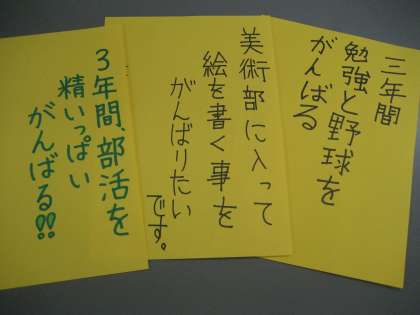 三年間
勉強と野球を
がんばる
美術部に入って
絵を書く事を
がんばりたい
です。
3年間、部活を
精いっぱい
がんばる!!